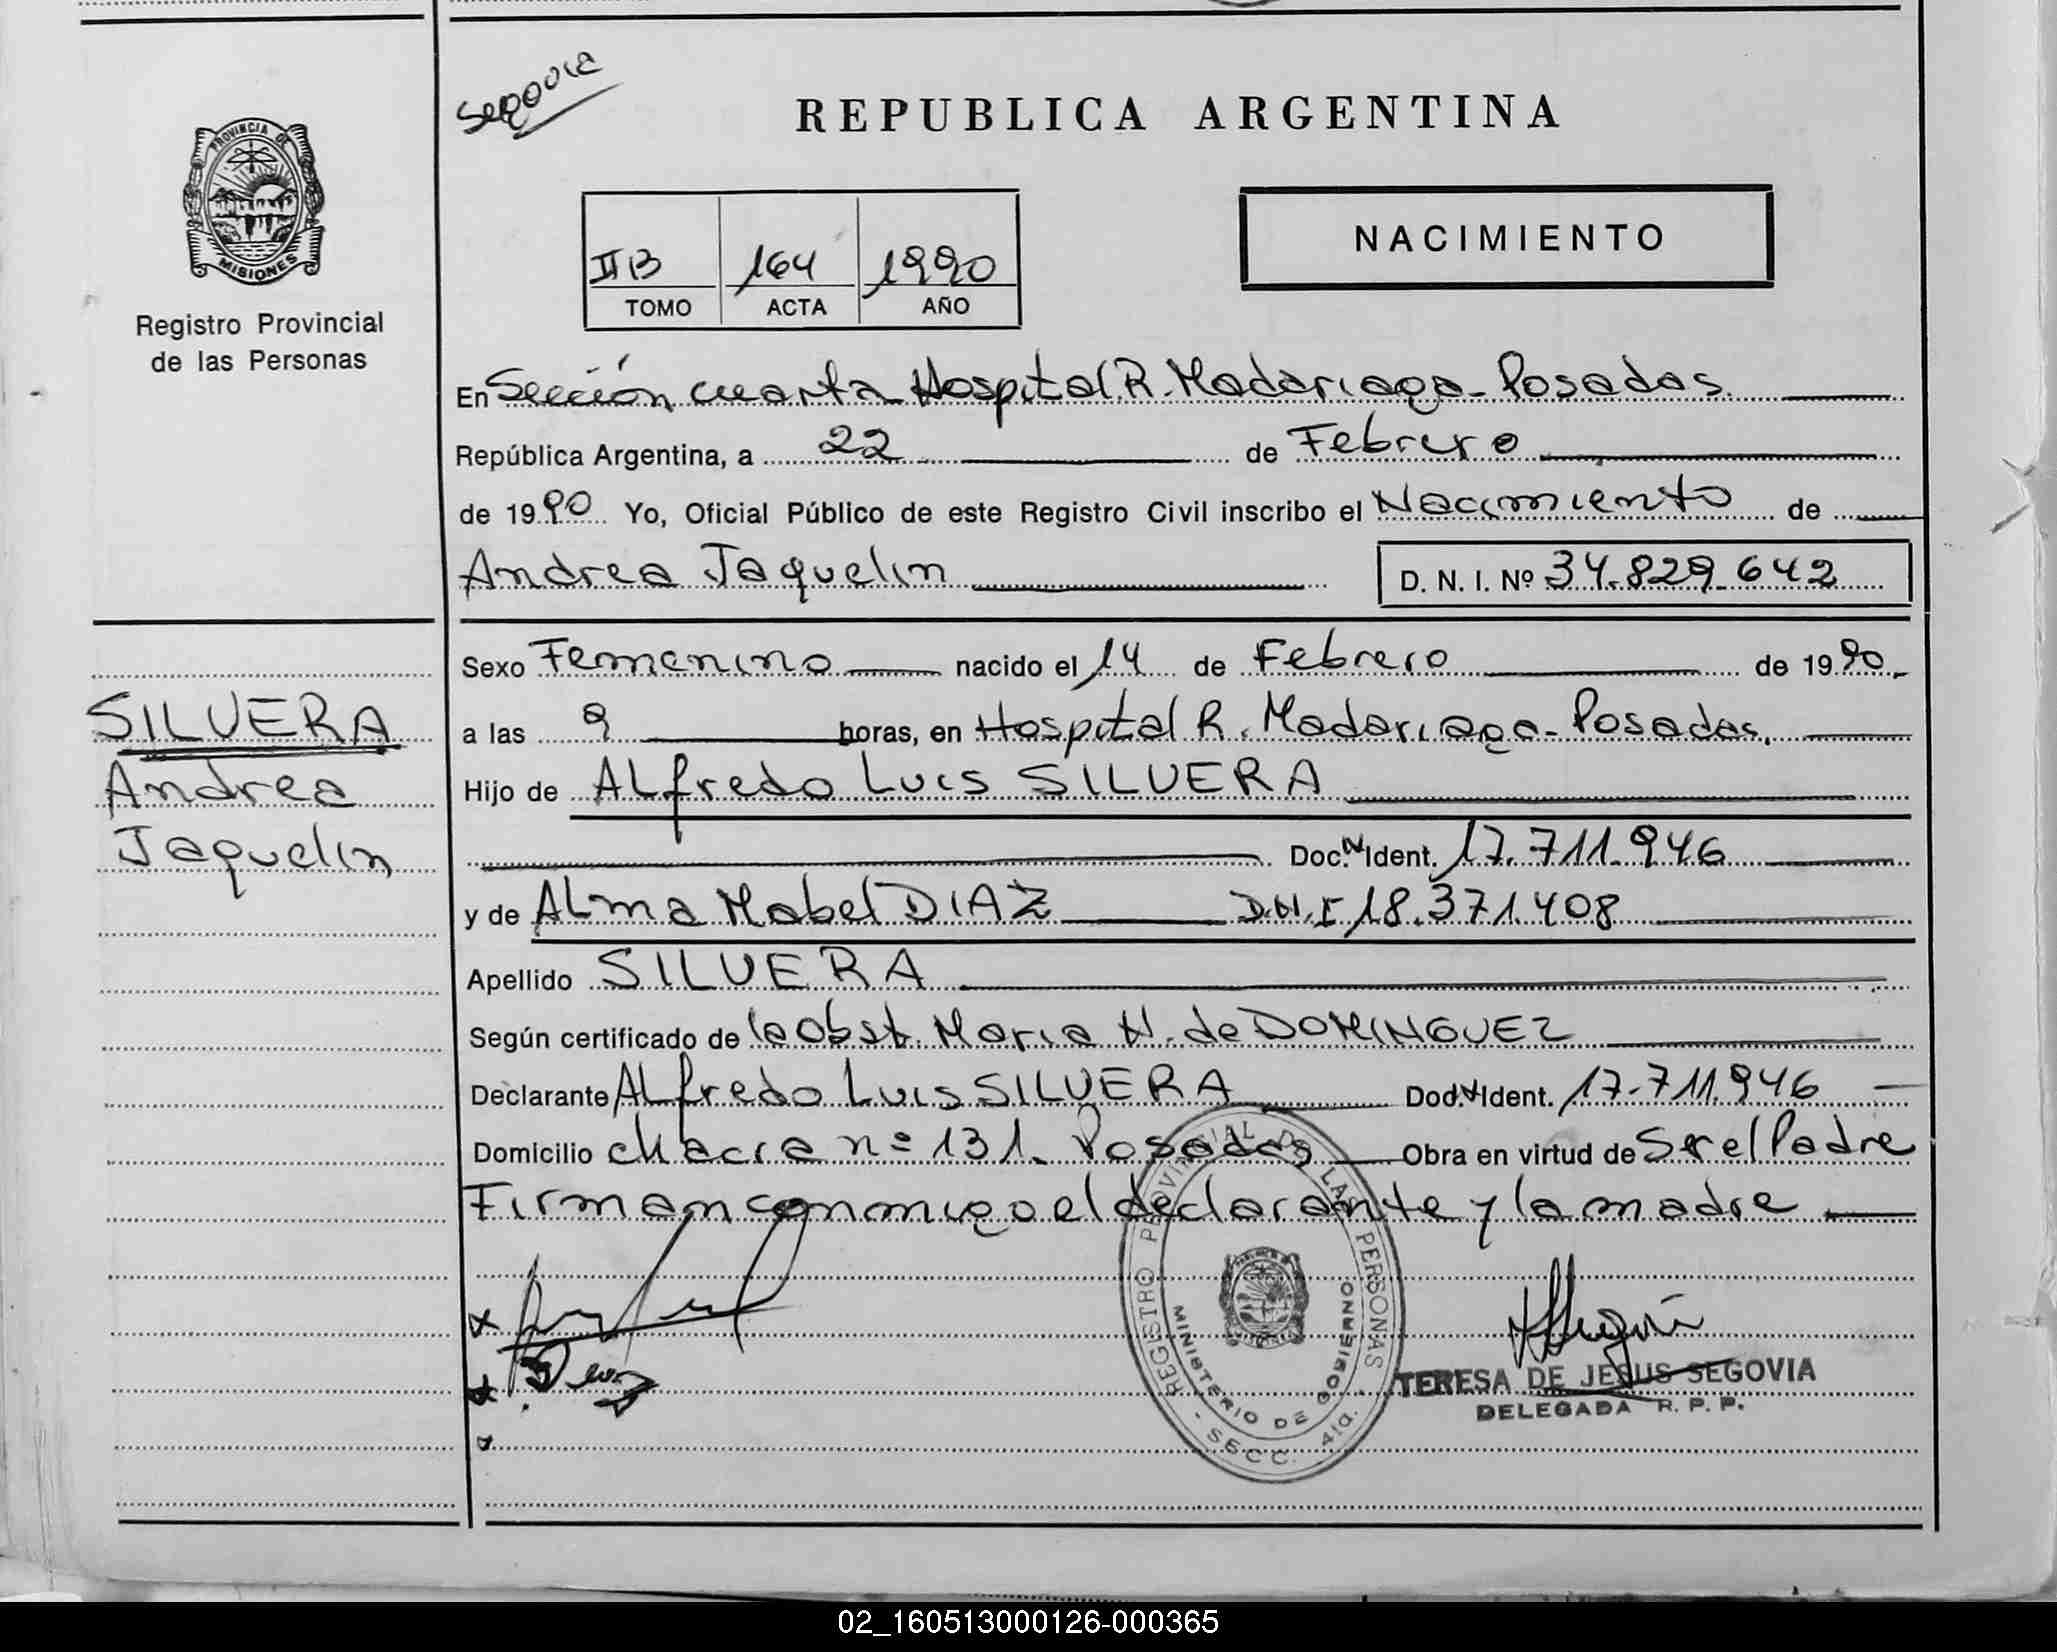 Segovia
REPUBLICA ARGENTINA
PROVINCIA DE
MISIONES
Registro Provincial
de las Personas
II B 164 1990
TOMO ACTA AÑO
NACIMIENTO
En Sección cuarta Hospital R. Madariaga - Posadas.
República Argentina, a 22 de Febrero
de 1990 Yo, Oficial Público de este Registro Civil inscribo el Nacimiento de
Andrea Jaquelin D. N. I. Nº 34.829.642
Sexo Femenino nacido el 14 de Febrero de 1990.
SILVERA
Andrea
Jaquelin
a las 9 horas, en Hospital R. Madariaga - Posadas.
Hijo de ALfredo Luis SILVERA
Doc. N Ident. 17.711.946
y de ALma Mabel DIAZ D.N.I 18.371.408
Apellido SILVERA
Según certificado de la Obst. Maria N. de DOMINGUEZ
Declarante ALfredo Luis SILVERA Doc. N Ident. 17.711.946
Domicilio chacra nº 131. Posadas Obra en virtud de Ser el Padre
Firman conmigo el declarante y la madre
REGISTRO PROVINCIAL DE LAS PERSONAS
MINISTERIO DE GOBIERNO
SECC. 4ta.
TERESA DE JESUS SEGOVIA
DELEGADA R. P. P.
02_160513000126-000365